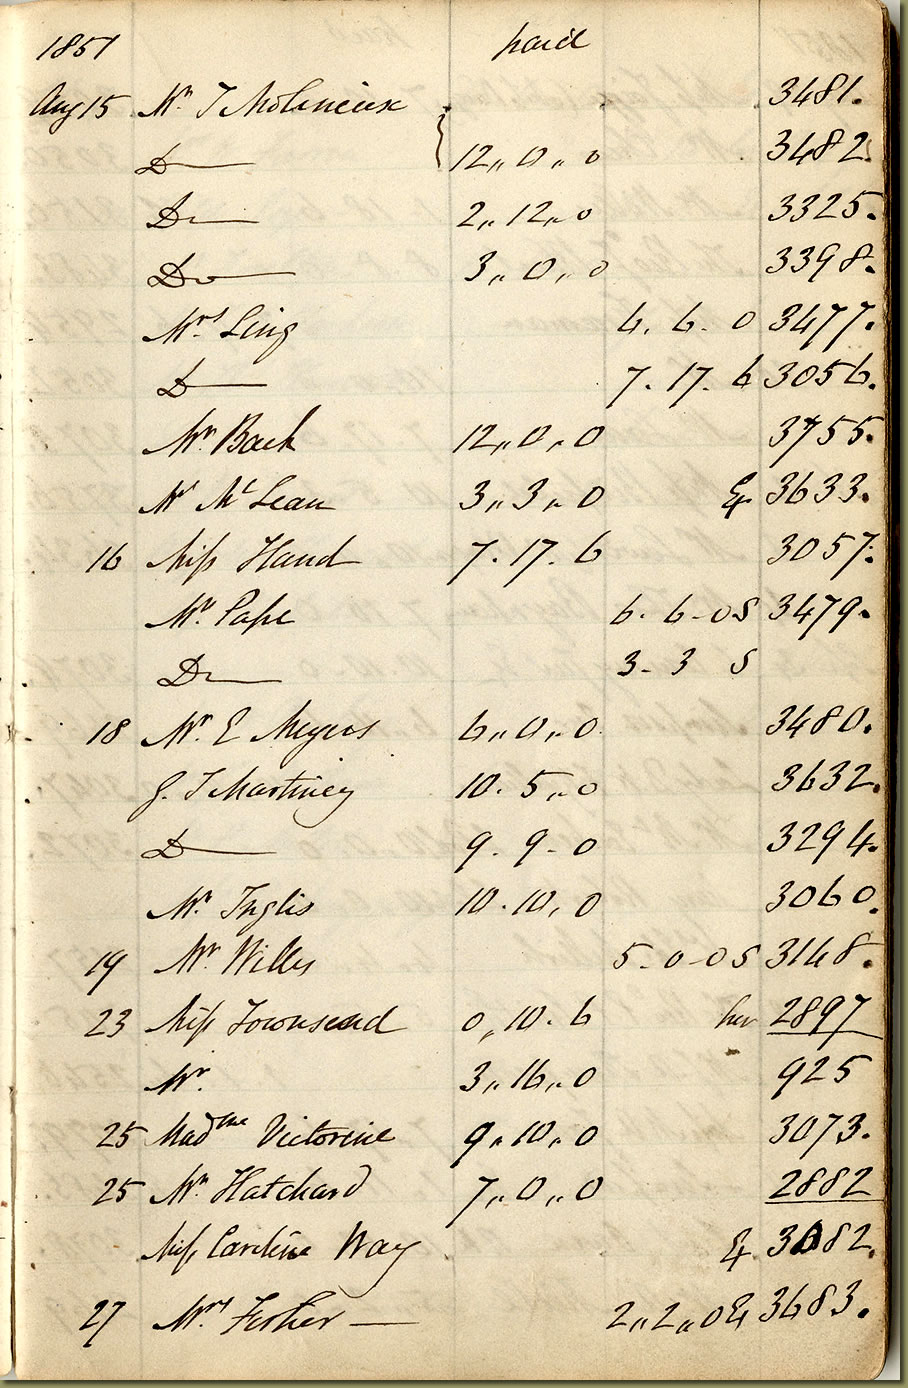 1851 paid
Aug 15 Mr T Molineux 3481.
D— 12,, 0,, 0 3482.
Do— 2,, 12,, 0 3325.
Do— 3,, 0,, 0 3398.
Mrs Ling 6. 6. 0 3477.
D— 7. 17. 6 3056.
Mr Back 12,, 0,, 0 3755.
Mr McLean 3,, 3,, 0 Ex 3633.
16 Miss Hand 7. 17. 6 3057.
Mr Pape 6. 6-0 S 3479.
Do— 3- 3 S
18 Mr. E Meyers 6,, 0,, 0 3480.
J. T Martiney 10. 5,, 0 3632.
D— 9. 9-0 3294.
Mr Inglis 10. 10, 0 3060.
19 Mr Willes 5-0-0 S 3148.
23 Miss Townsend 0,, 10. 6 her 2897
Mr. 3,, 16,, 0 925
25 Madme Victorine 9,, 10,, 0 3073.
25 Mr Hatchard 7,, 0,, 0 2882
Miss Caroline Way Ex 3682.
27 Mrs — 2,, 2,, 0 Ex 3683.